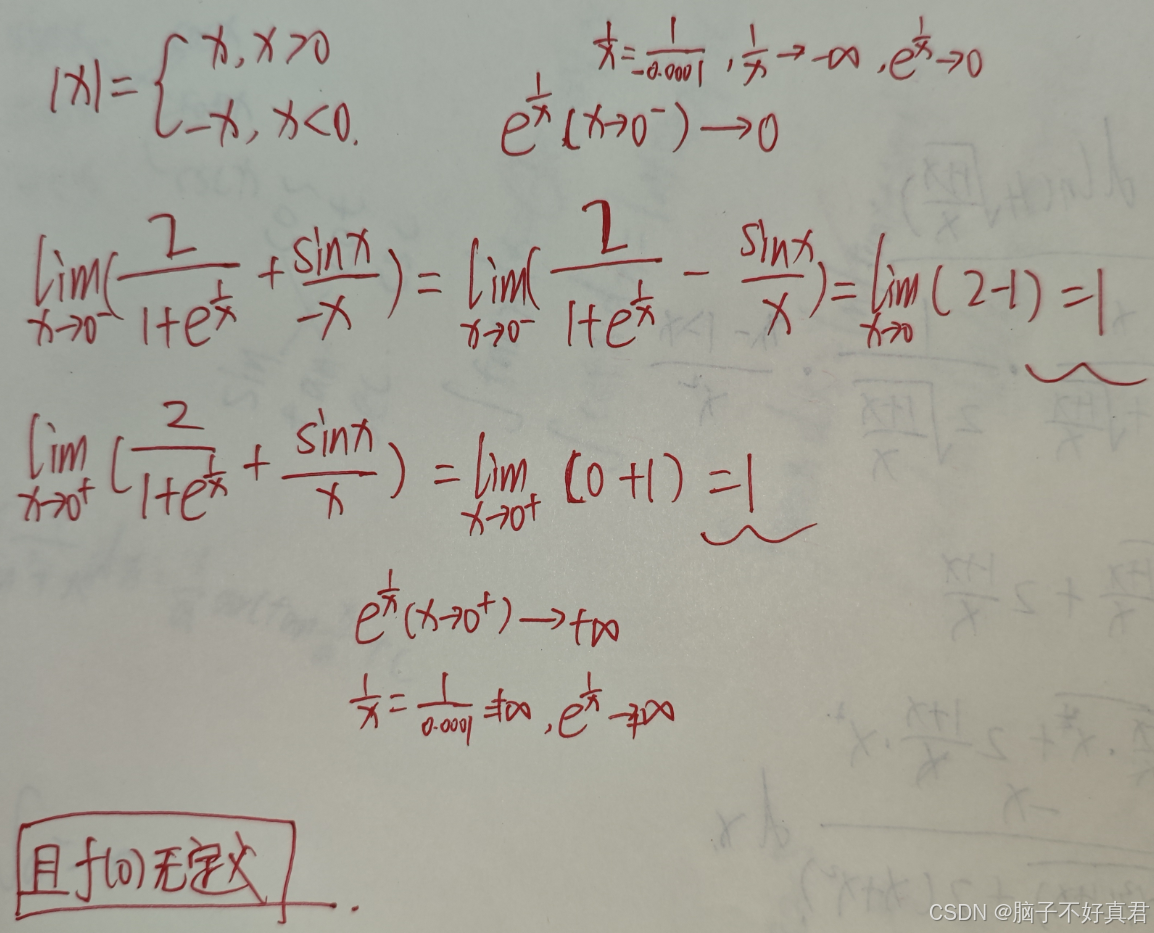 |x| = { x, x>0
-x, x<0.
1/x = 1/-0.0001, 1/x → -∞, e^(1/x) → 0
e^(1/x) (x→0⁻) → 0
lim x→0⁻ ( 2/(1+e^(1/x)) + sinx/-x ) = lim x→0⁻ ( 2/(1+e^(1/x)) - sinx/x ) = lim x→0 (2-1) = 1
lim x→0⁺ ( 2/(1+e^(1/x)) + sinx/x ) = lim x→0⁺ (0+1) = 1
e^(1/x) (x→0⁺) → +∞
1/x = 1/0.0001 = +∞, e^(1/x) → +∞
且 f(0) 无定义.
CSDN @脑子不好真君